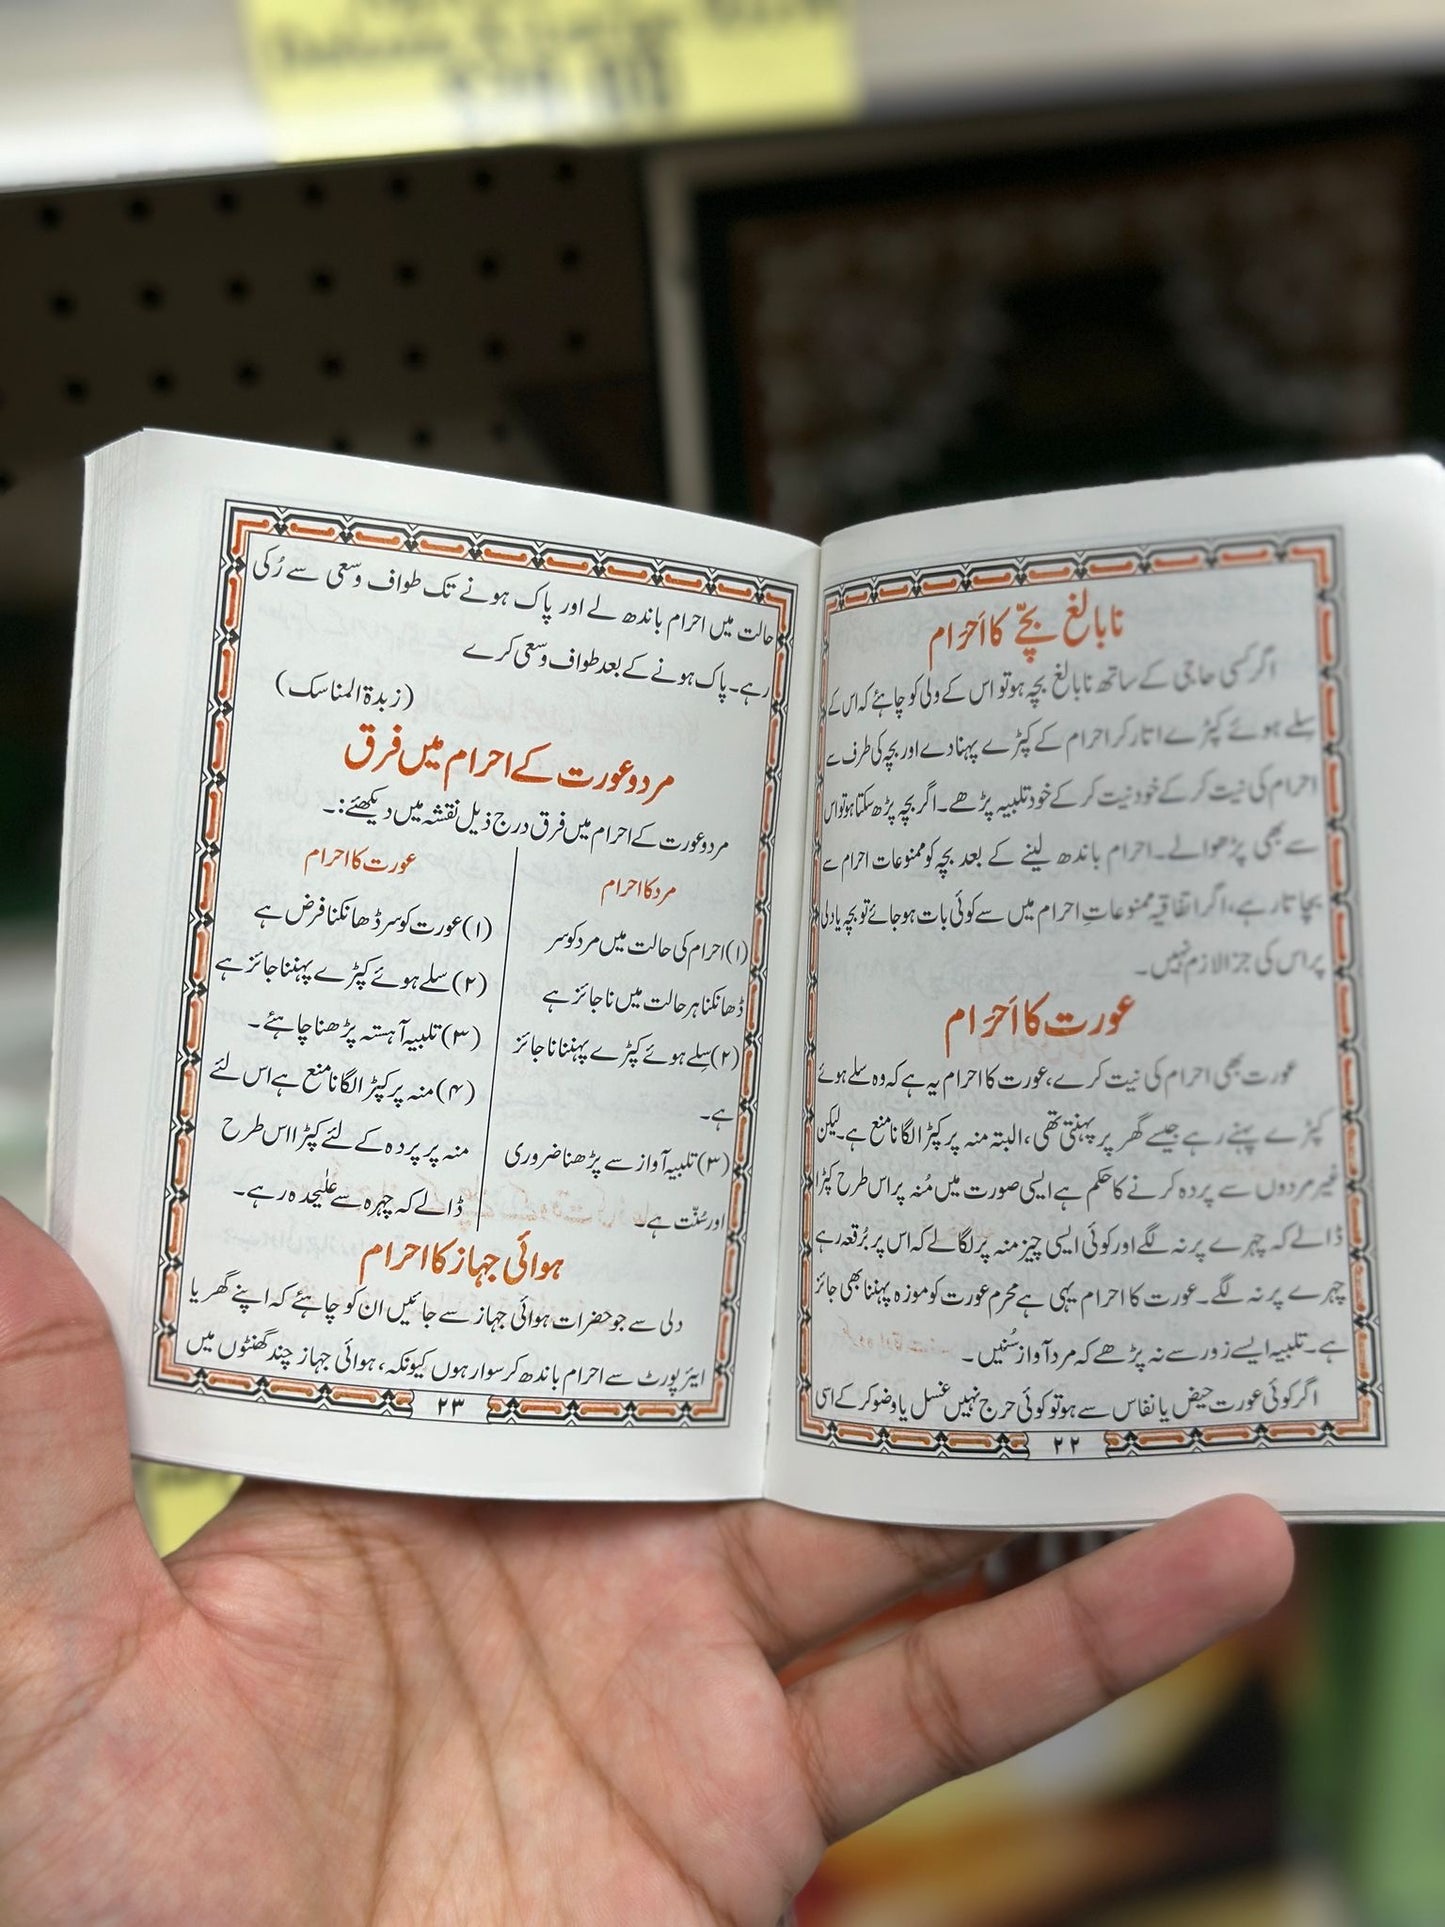 نابالغ بچّے کا اَحرام
اگر کسی حاجی کے ساتھ نابالغ بچہ ہو تو اس کے ولی کو چاہئے کہ اس کے
سِلے ہوئے کپڑے اتار کر احرام کے کپڑے پہنادے اور بچہ کی طرف سے
احرام کی نیت کر کے خود نیت کر کے خود تلبیہ پڑھے۔ اگر بچہ پڑھ سکتا ہو تو اس
سے بھی پڑھوالے۔ احرام باندھ لینے کے بعد بچہ کو ممنوعات احرام سے
بچاتا رہے، اگر اتفاقیہ ممنوعاتِ احرام میں سے کوئی بات ہو جائے تو بچہ یا ولی
پر اس کی جزا لازم نہیں۔
عورت کا اَحرام
عورت بھی احرام کی نیت کرے، عورت کا احرام یہ ہے کہ وہ سلے ہوئے
کپڑے پہنے رہے جیسے گھر پر پہنتی تھی، البتہ منہ پر کپڑا لگانا منع ہے۔ لیکن
غیر مردوں سے پردہ کرنے کا حکم ہے ایسی صورت میں مُنہ پر اس طرح کپڑا
ڈالے کہ چہرے پر نہ لگے اور کوئی ایسی چیز منہ پر لگالے کہ اس پر بُرقعہ رہے
چہرے پر نہ لگے۔ عورت کا احرام یہی ہے محرم عورت کو موزہ پہننا بھی جائز
ہے۔ تلبیہ ایسے زور سے نہ پڑھے کہ مرد آواز سُنیں۔
اگر کوئی عورت حیض یا نفاس سے ہو تو کوئی حرج نہیں غسل یا وضو کر کے اسی
۲۲
حالت میں احرام باندھ لے اور پاک ہونے تک طواف وسعی سے رُکی
رہے۔ پاک ہونے کے بعد طواف وسعی کرے
(زبدۃ المناسک)
مرد و عورت کے احرام میں فرق
مرد و عورت کے احرام میں فرق درج ذیل نقشہ میں دیکھئے:۔
مرد کا احرام
(۱) احرام کی حالت میں مرد کو سر
ڈھانکنا ہر حالت میں ناجائز ہے
(۲) سِلے ہوئے کپڑے پہننا ناجائز
ہے۔
(۳) تلبیہ آواز سے پڑھنا ضروری
اور سُنّت ہے۔
عورت کا احرام
(۱) عورت کو سر ڈھانکنا فرض ہے
(۲) سلے ہوئے کپڑے پہننا جائز ہے
(۳) تلبیہ آہستہ پڑھنا چاہئے۔
(۴) منہ پر کپڑا لگانا منع ہے اس لئے
منہ پر پردہ کے لئے کپڑا اس طرح
ڈالے کہ چہرہ سے علیٰحدہ رہے۔
ہوائی جہاز کا احرام
دلی سے جو حضرات ہوائی جہاز سے جائیں ان کو چاہئے کہ اپنے گھر یا
ایئرپورٹ سے احرام باندھ کر سوار ہوں کیونکہ، ہوائی جہاز چند گھنٹوں میں
۲۳